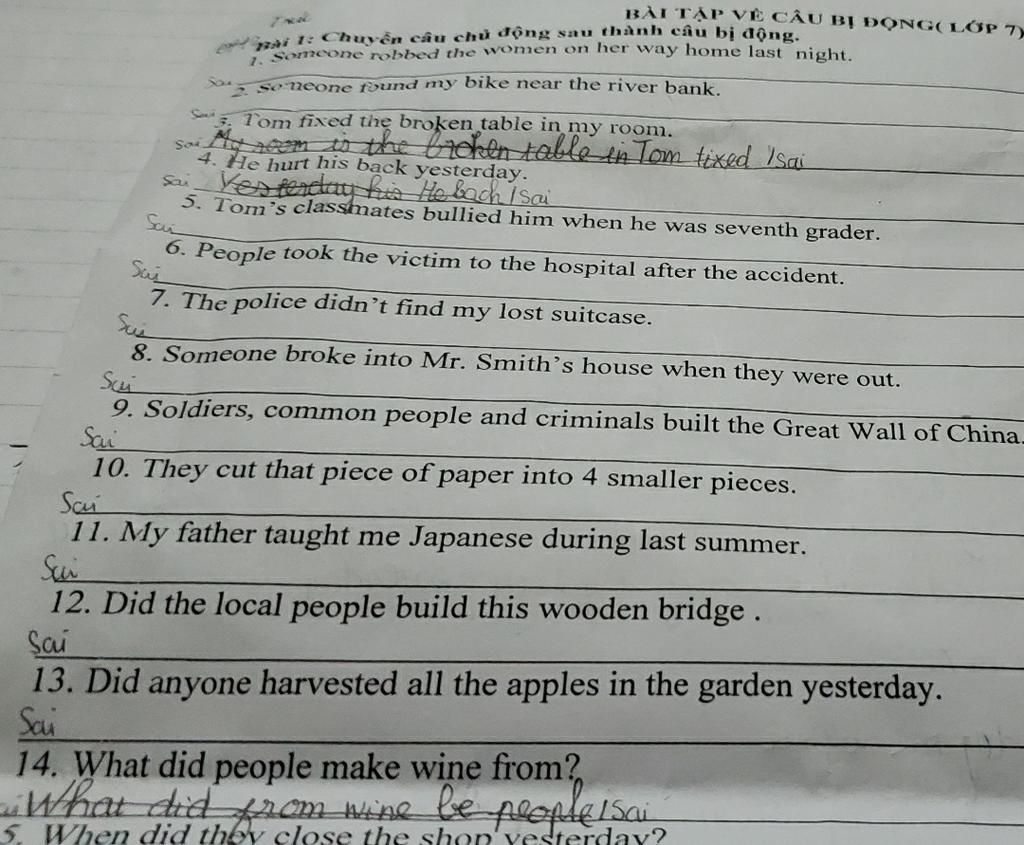 BÀI TẬP VỀ CÂU BỊ ĐỘNG( LỚP 7)
Bài 1: Chuyển câu chủ động sau thành câu bị động.
1. Someone robbed the women on her way home last night.
2. Someone found my bike near the river bank.
Sai
3. Tom fixed the broken table in my room.
Sai My room is the broken table in Tom fixed /sai
4. He hurt his back yesterday.
Sai Yesterday his He bach /sai
5. Tom's classmates bullied him when he was seventh grader.
Sai
6. People took the victim to the hospital after the accident.
Sai
7. The police didn't find my lost suitcase.
Sai
8. Someone broke into Mr. Smith's house when they were out.
Sai
9. Soldiers, common people and criminals built the Great Wall of China.
Sai
10. They cut that piece of paper into 4 smaller pieces.
Sai
11. My father taught me Japanese during last summer.
Sai
12. Did the local people build this wooden bridge .
Sai
13. Did anyone harvested all the apples in the garden yesterday.
Sai
14. What did people make wine from?
What did from wine be people /Sai
5. When did they close the shop yesterday?